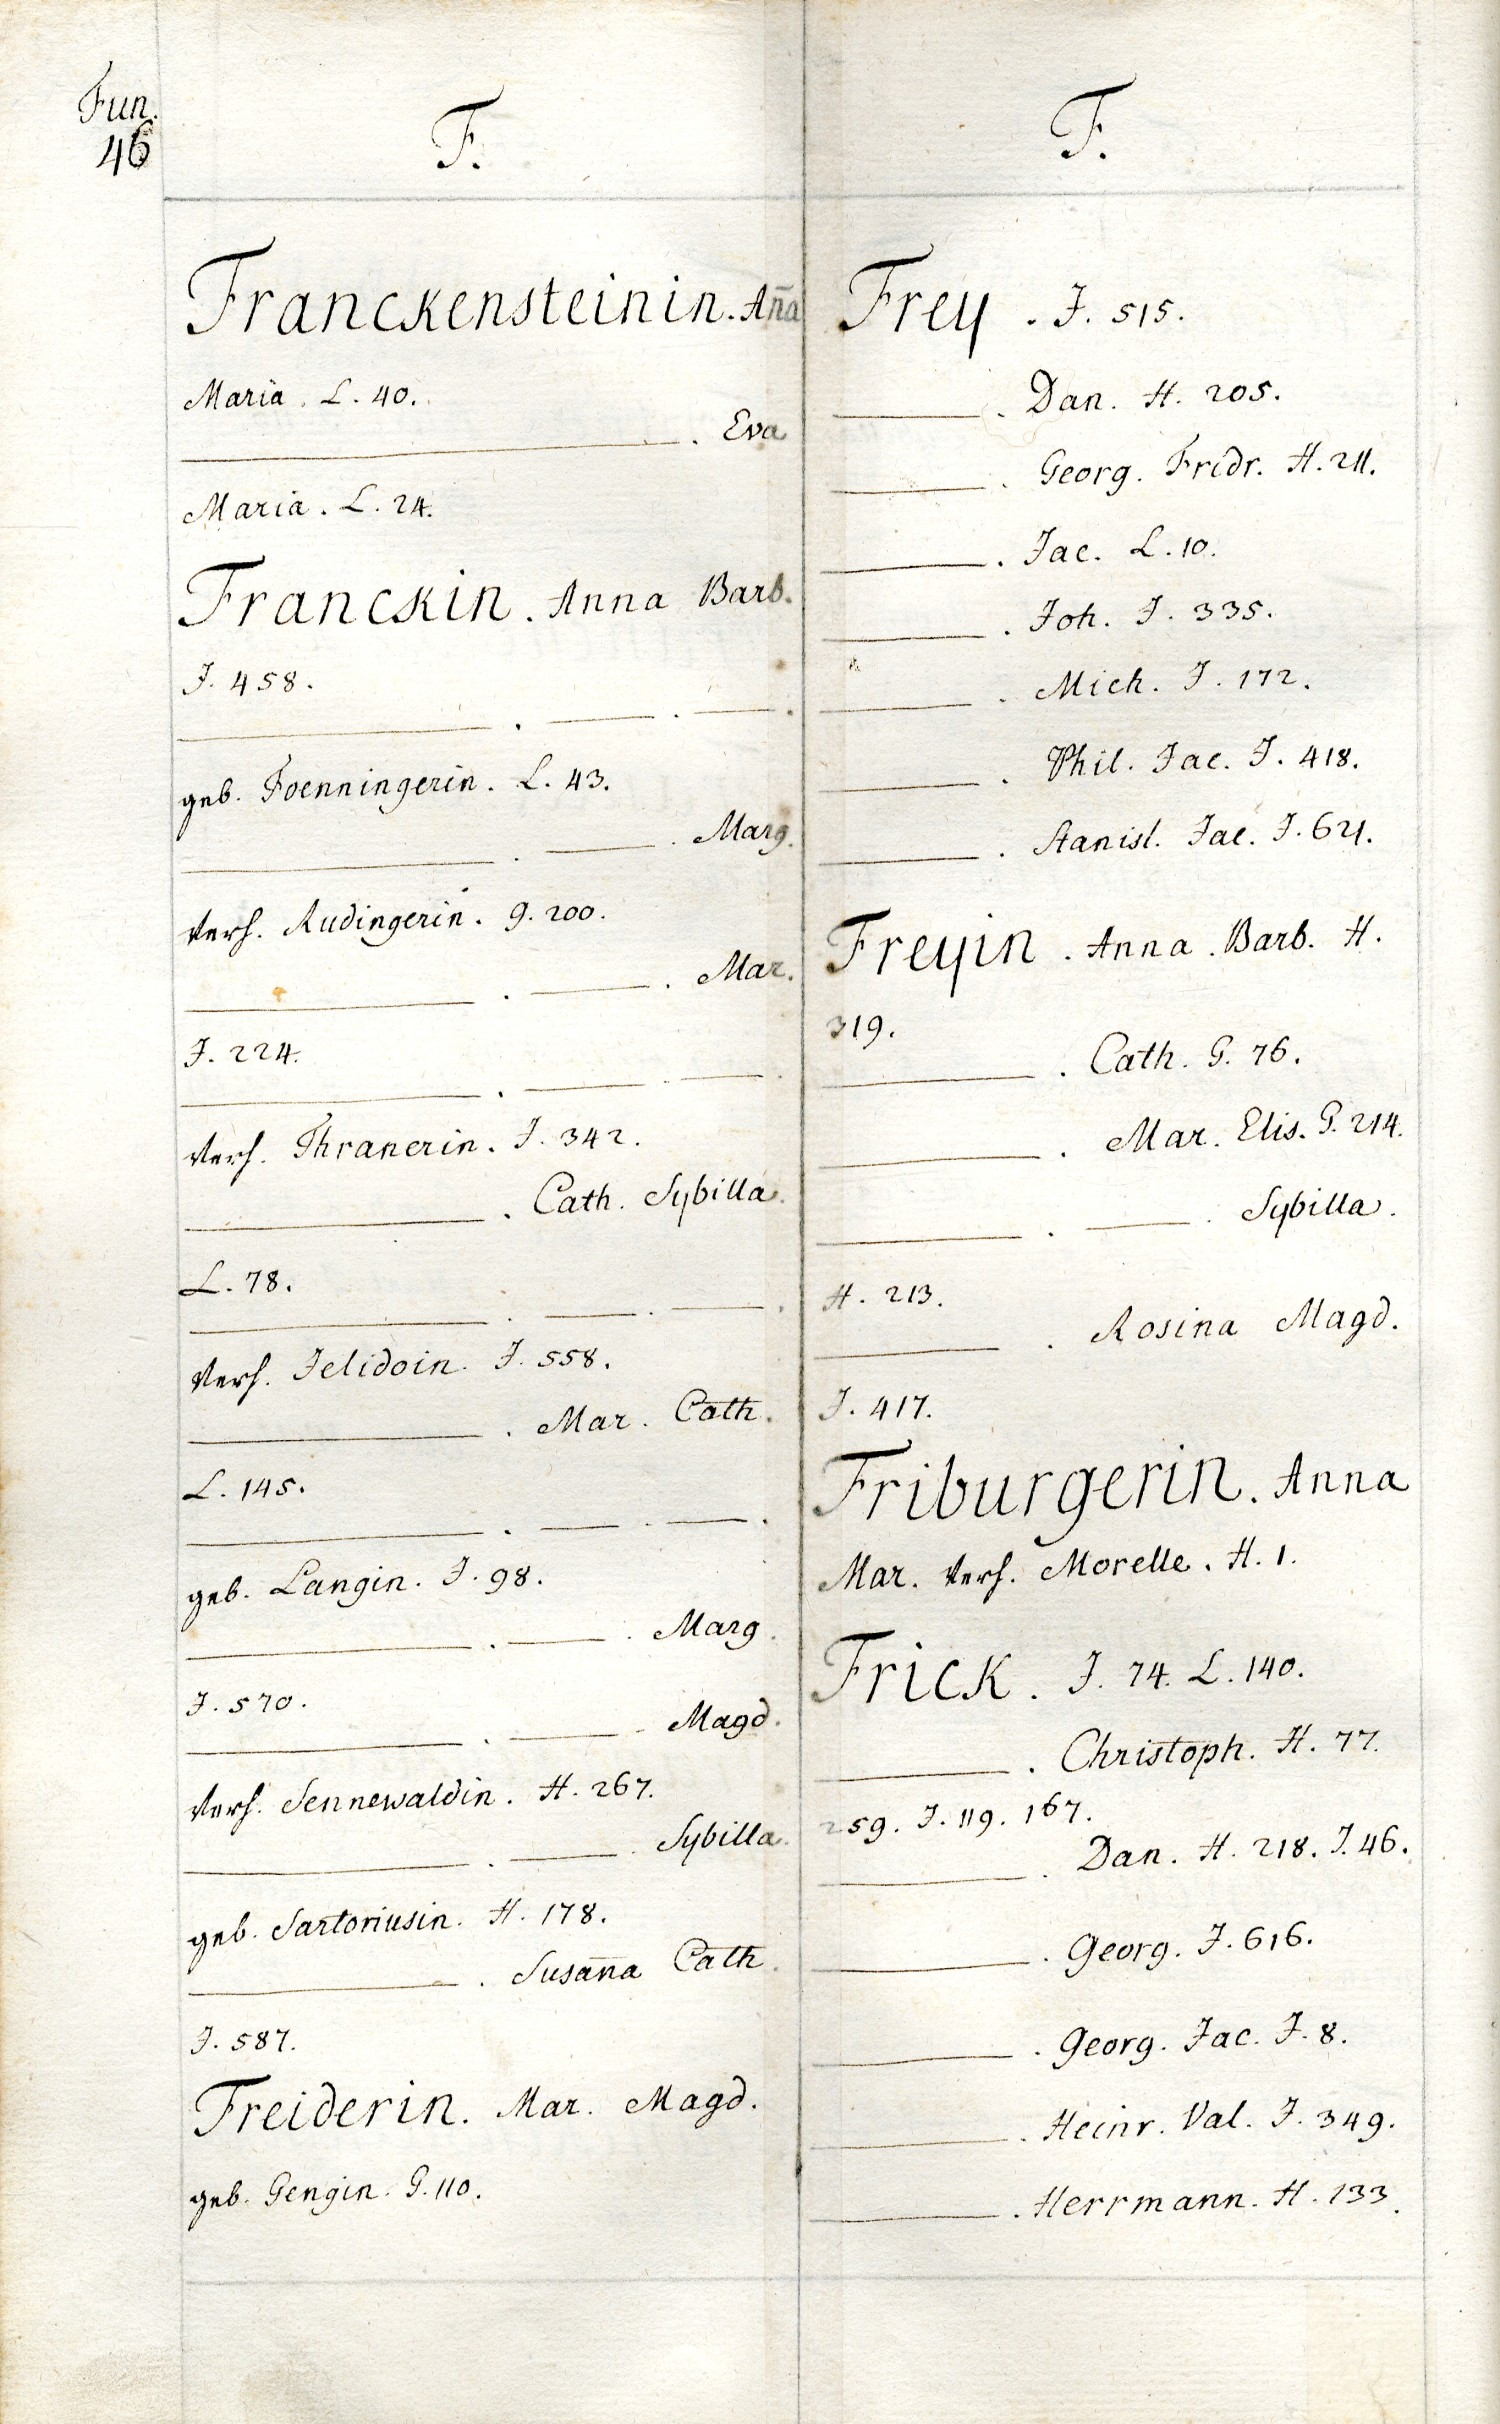 Fun.
46
F.
Franckensteinin. Aña
Maria. L. 40.
———. Eva
Maria. L. 24.
Franckin. Anna Barb.
J. 458.
———. ———. ———.
geb. Foenningerin. L. 43.
———. ———. Marg.
verh. Rudingerin. G. 200.
———. ———. Mar.
J. 224.
———. ———. ———.
verh. Thranerin. J. 342.
———. Cath. Sybilla.
L. 78.
———. ———. ———.
verh. Jelidoin. J. 558.
———. Mar. Cath.
L. 145.
———. ———. ———.
geb. Langin. J. 98.
———. ———. Marg.
J. 570.
———. ———. Magd.
verh. Sennewaldin. H. 267.
———. ———. Sybilla.
geb. Sartoriusin. H. 178.
———. Susana Cath.
J. 587.
Freiderin. Mar. Magd.
geb. Gengin. G. 110.
F.
Frey. J. 515.
———. Dan. H. 205.
———. Georg. Fridr. H. 211.
———. Jac. L. 10.
———. Joh. J. 335.
———. Mich. J. 172.
———. Phil. Jac. J. 418.
———. Stanisl. Jac. J. 621.
Freyin. Anna. Barb. H.
319.
———. Cath. G. 76.
———. Mar. Elis. G. 214.
———. ———. Sybilla.
H. 213.
———. Rosina Magd.
J. 417.
Friburgerin. Anna
Mar. verh. Morelle. H. 1.
Frick. J. 74. L. 140.
———. Christoph. H. 77.
259. J. 119. 167.
———. Dan. H. 218. J. 46.
———. Georg. J. 616.
———. Georg. Jac. J. 8.
———. Heinr. Val. J. 349.
———. Herrmann. H. 133.